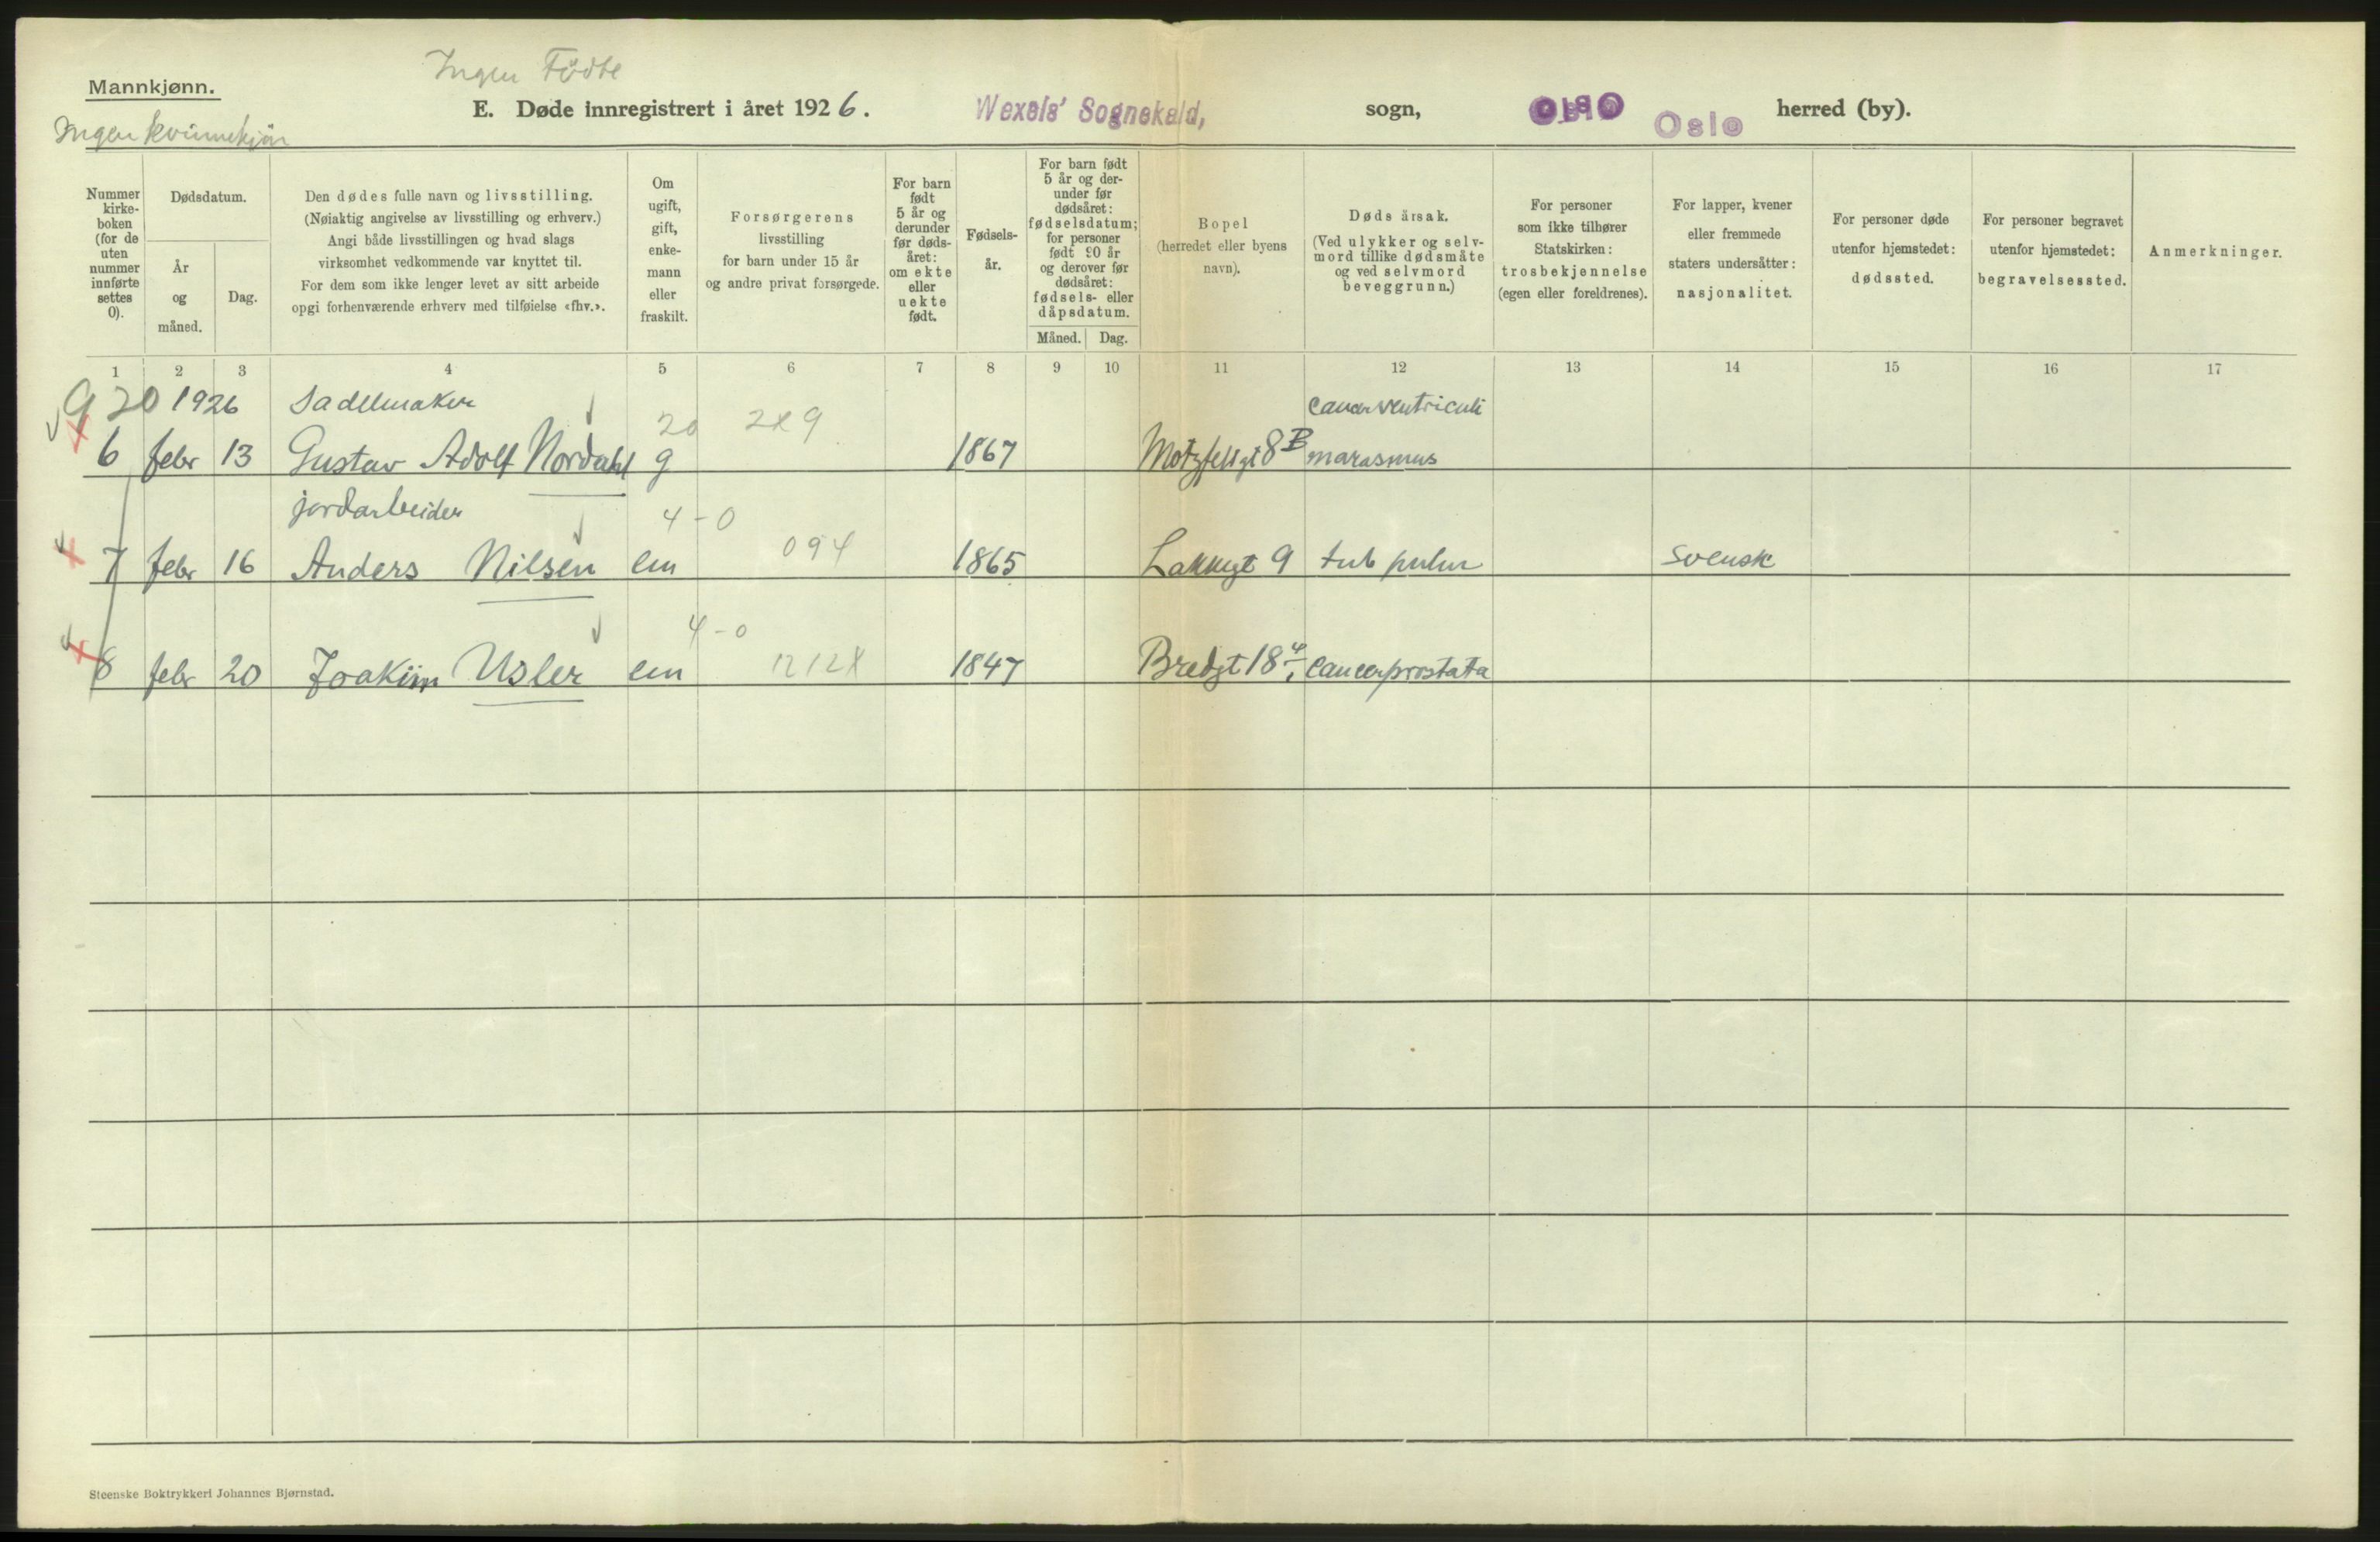 Ingen Födte
Mannkjønn.
E. Døde innregistrert i året 1926. Wexels' Sognekald, sogn, Oslo Oslo herred (by).
Ingen kvinnekjön
Nummer
kirke-
boken
(for de
uten
nummer
innførte
settes
0).
Dødsdatum.
År
og
måned.
Dag.
Den dødes fulle navn og livsstilling.
(Nøiaktig angivelse av livsstilling og erhverv.)
Angi både livsstillingen og hvad slags
virksomhet vedkommende var knyttet til.
For dem som ikke lenger levet av sitt arbeide
opgi forhenværende erhverv med tilføielse «fhv.».
Om
ugift,
gift,
enke-
mann
eller
fraskilt.
Forsørgerens
livsstilling
for barn under 15 år
og andre privat forsørgede.
For barn
født
5 år og
derunder
før døds-
året:
om ekte
eller
uekte
født.
Fødsels-
år.
For barn født
5 år og der-
under før
dødsåret:
fødselsdatum;
for personer
født 90 år
og derover før
dødsåret:
fødsels- eller
dåpsdatum.
Måned. Dag.
Bopel
(herredet eller byens
navn).
Døds årsak.
(Ved ulykker og selv-
mord tillike dødsmåte
og ved selvmord
beveggrunn.)
For personer
som ikke tilhører
Statskirken:
trosbekjennelse
(egen eller foreldrenes).
For lapper, kvener
eller fremmede
staters undersåtter:
nasjonalitet.
For personer døde
utenfor hjemstedet:
dødssted.
For personer begravet
utenfor hjemstedet:
begravelsessted.
Anmerkninger.
1 2 3 4 5 6 7 8 9 10 11 12 13 14 15 16 17
920 1926 Sadelmaker 20 2X9 Cancer ventriculi
6 febr 13 Gustav Adolf Nordahl g 1867 Motzfeldtgt 8B marasmus
jordarbeider 4-0
7 febr 16 Anders Nilsen em 094 1865 Lakkegt 9 tub pulm svensk
4-0
8 febr 20 Joakim Usler em 1212X 1847 Bredgt 18 4/. Cancer prostata
Steenske Boktrykkeri Johannes Bjørnstad.